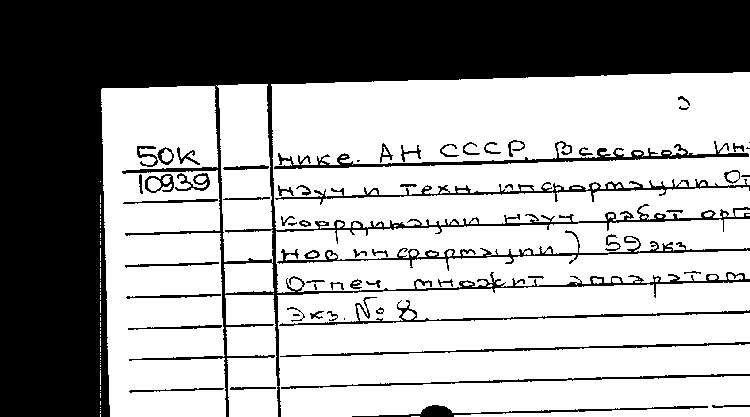 50К нике. АН СССР. Всесоюз. ин-
10939 науч и техн. информации. От
координации науч работ орга
нов информации) 59 экз.
Отпеч. множит аппаратом
Экз. № 8.